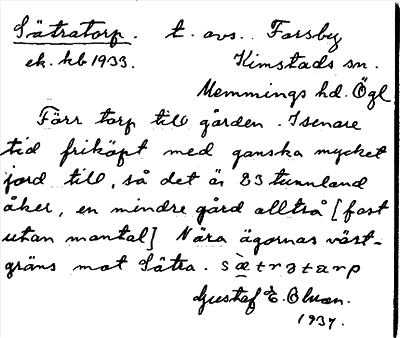 Sätratorp. t. avs. Forsby
ek. kb 1933. Kimstads sn.
Memmings hd. Ögl
Förr torp till gården. I senare
tid friköpt med ganska mycket
jord till, så det är 23 tunnland
åker, en mindre gård alltså [fast
utan mantal] Nära ägornas väst-
gräns mot Sätra. sä̀tratarp
Gustaf E.
1937.